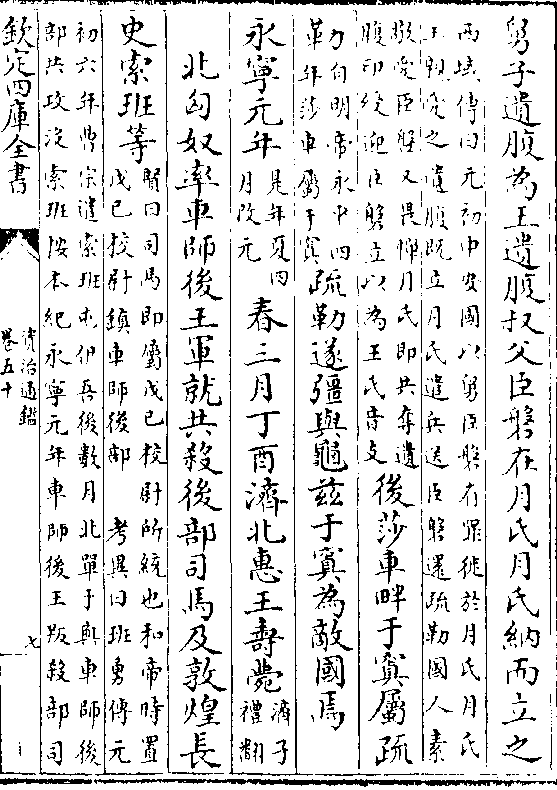 舅子遺腹為王遺腹叔父臣磐在月氏月氏納而立之
西域傳曰元初中安國以舅臣磐有罪徙於月氏月氏
王親愛之遺腹既立月氏遣兵送臣磐還疏勒國人素
敬愛臣磐又畏憚月氏即共奪遺
腹印綬迎臣磐立以為王氏音支
後莎車畔于窴屬疏
勒自明帝永平四
年莎車屬于窴
疏勒遂彊與龜兹于窴為敵國焉
永寧元年
是年夏四
月改元
春三月丁酉濟北惠王壽薨
濟子
禮翻
北匈奴率車師後王軍就共殺後部司馬及敦煌長
史索班等
賢曰司馬即屬戊已校尉所統也和帝時置
戊已校尉鎮車師後部 考異曰班勇傳元
初六年曹宗遣索班屯伊吾後數月北單于與車師後
部共攻没索班按本紀永寧元年車師後王叛殺部司
欽定四庫全書
資治通鑑
卷五十
七